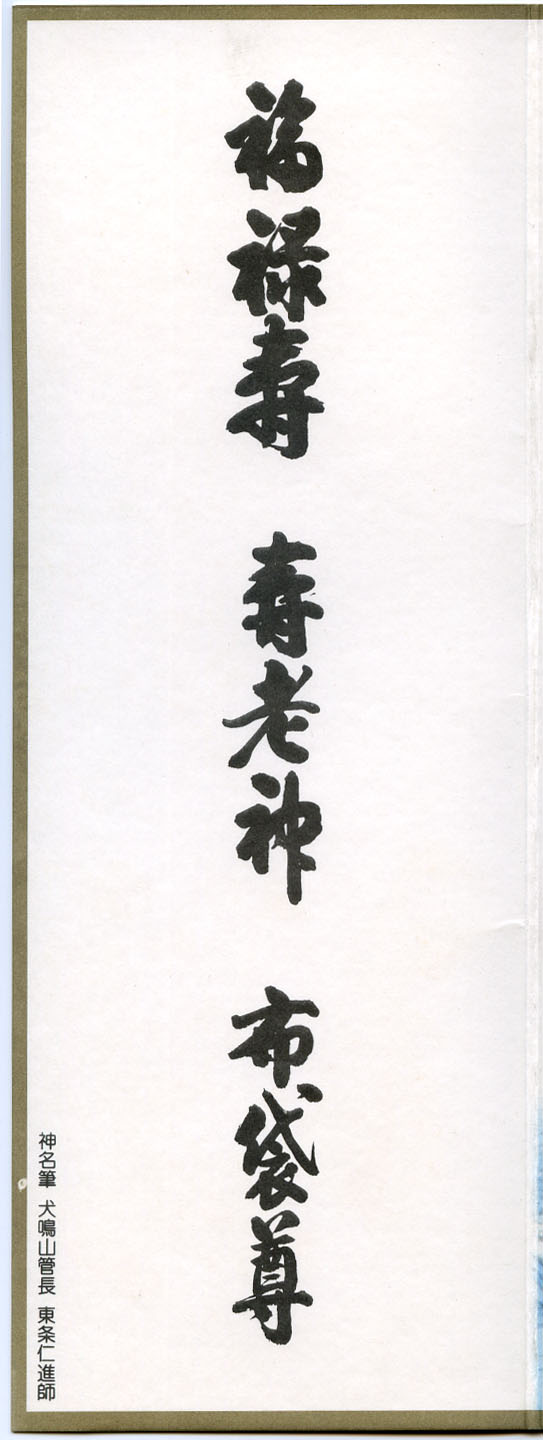 福禄寿　寿老神　布袋尊
神名筆　犬鳴山管長　東条仁進師